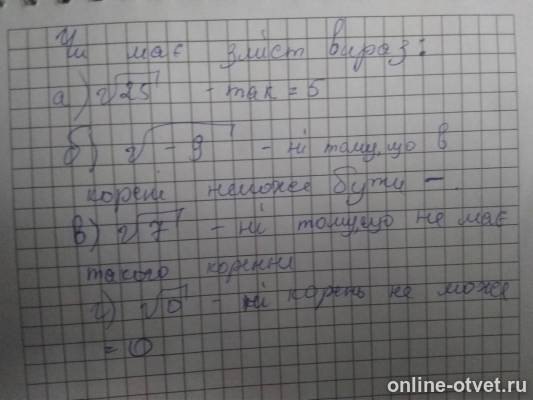 Чи має зміст вираз:
а) √25 - так = 5
б) √-9 - ні тому, що в
корені неможе бути -.
в) √7 - ні тому,що не має
такого корення
г) √0 - ні корень не може
= 0
online-otvet.ru